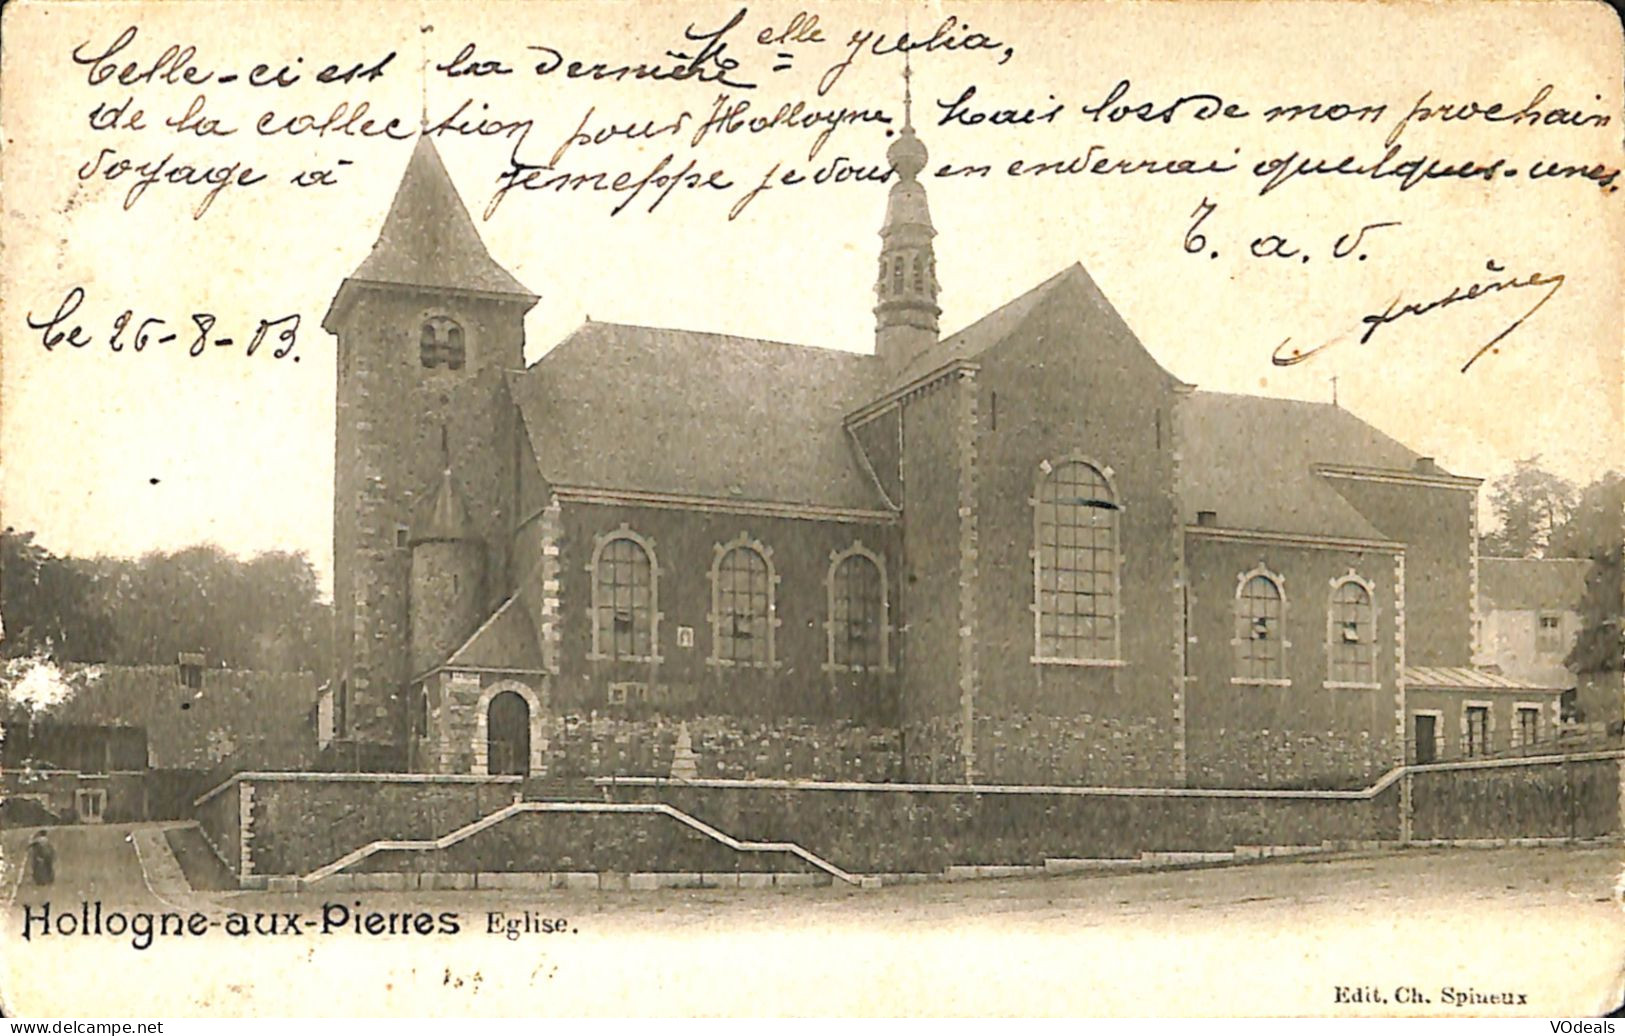 Melle Julia,
Celle-ci est la dernière
de la collection pour Hollogne. Mais lors de mon prochain
voyage à Jemeppe je vous en enverrai quelques-unes.
T. a. v.
Arsène
Le 26-8-03.
Hollogne-aux-Pierres Eglise.
Edit. Ch. Spineux
www.delcampe.net
VOdeals